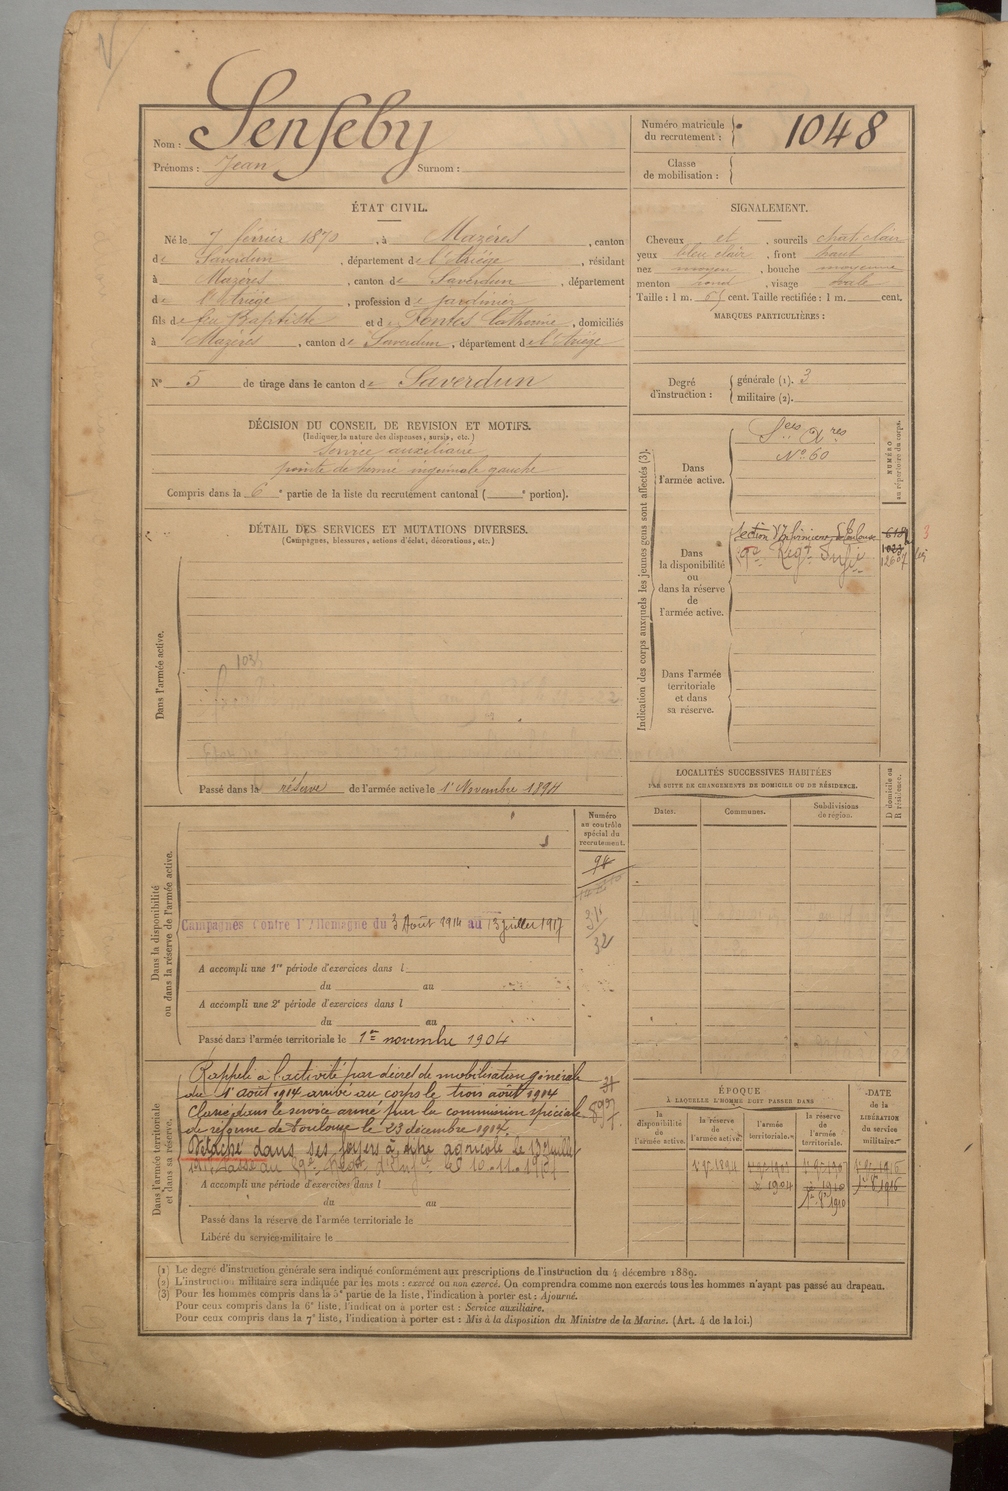 Nom : Senseby
Prénoms : Jean Surnom :
Numéro matricule du recrutement : 1048
Classe de mobilisation :
ÉTAT CIVIL.
Né le 7 février 1870, à Mazères, canton
de Saverdun, département de l'Ariège, résidant
à Mazères, canton de Saverdun, département
de l'Ariège, profession de jardinier
fils de feu Baptiste et de Fontes Catherine, domiciliés
à Mazères, canton de Saverdun, département de l'Ariège
N° 5 de tirage dans le canton de Saverdun
SIGNALEMENT.
Cheveux et, sourcils chat. clair
yeux bleu clair, front haut
nez moyen, bouche moyenne
menton rond, visage ovale
Taille : 1 m. 65 cent. Taille rectifiée : 1 m. cent.
MARQUES PARTICULIÈRES :
Degré d'instruction : générale (1). 3
militaire (2).
DÉCISION DU CONSEIL DE REVISION ET MOTIFS.
(Indiquer la nature des dispenses, sursis, etc.)
Service auxiliaire
pointe de hernie inguinale gauche
Compris dans la 6e partie de la liste du recrutement cantonal ( e portion).
DÉTAIL DES SERVICES ET MUTATIONS DIVERSES.
(Campagnes, blessures, actions d'éclat, décorations, etc.)
Dans l'armée active.
Passé dans la réserve de l'armée active le 1er Novembre 1894
Indication des corps auxquels les jeunes gens sont affectés (3).
NUMÉRO au répertoire du corps.
Dans l'armée active.
Sces Axres
N° 60
Dans la disponibilité ou dans la réserve de l'armée active.
Section d'Infirmiers Toulouse
Regt Inf
Dans l'armée territoriale et dans sa réserve.
LOCALITÉS SUCCESSIVES HABITÉES
PAR SUITE DE CHANGEMENTS DE DOMICILE OU DE RÉSIDENCE.
D domicile ou R résidence.
Dates.
Communes.
Subdivisions de région.
Dans la disponibilité ou dans la réserve de l'armée active.
Numéro au contrôle spécial du recrutement.
Campagnes contre l'Allemagne du 3 Août 1914 au 13 juillet 1917
A accompli une 1re période d'exercices dans l
du au
A accompli une 2e période d'exercices dans l
du au
Passé dans l'armée territoriale le 1er novembre 1904
Dans l'armée territoriale et dans sa réserve.
Rappelé à l'activité par décret de mobilisation générale
du 1er août 1914 arrivé au corps le trois août 1914
Classé dans le service armé par la commission spéciale
de réforme de Toulouse le 23 décembre 1914.
Détaché dans ses foyers à titre agricole le 13 juillet
1917. Passé au Regt d'Infie le 10-11-1917
A accompli une période d'exercices dans l
du au
Passé dans la réserve de l'armée territoriale le
Libéré du service militaire le
ÉPOQUE
À LAQUELLE L'HOMME DOIT PASSER DANS
la disponibilité de l'armée active.
la réserve de l'armée active.
l'armée territoriale.
la réserve de l'armée territoriale.
DATE de la LIBÉRATION du service militaire.
(1) Le degré d'instruction générale sera indiqué conformément aux prescriptions de l'instruction du 4 décembre 1889.
(2) L'instruction militaire sera indiquée par les mots : exercé ou non exercé. On comprendra comme non exercés tous les hommes n'ayant pas passé au drapeau.
(3) Pour les hommes compris dans la 5e partie de la liste, l'indication à porter est : Ajourné.
Pour ceux compris dans la 6e liste, l'indication à porter est : Service auxiliaire.
Pour ceux compris dans la 7e liste, l'indication à porter est : Mis à la disposition du Ministre de la Marine. (Art. 4 de la loi.)